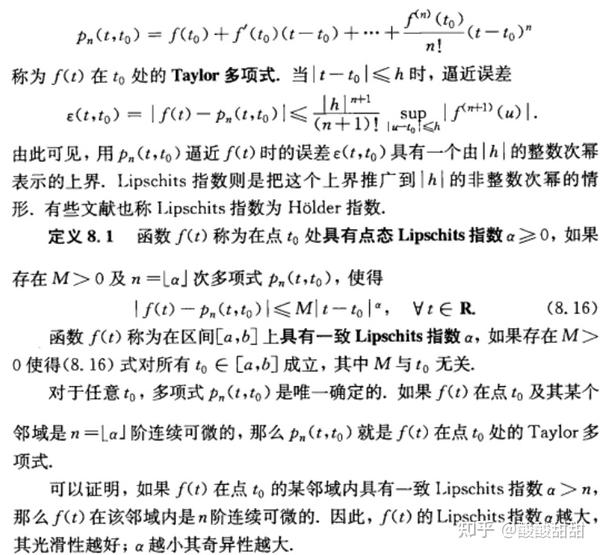 pₙ(t,t₀) = f(t₀) + f′(t₀)(t − t₀) + ⋯ + f⁽ⁿ⁾(t₀)/n! (t − t₀)ⁿ
称为 f(t) 在 t₀ 处的 Taylor 多项式. 当|t − t₀|≤h 时, 逼近误差
ε(t,t₀) = | f(t) − pₙ(t,t₀)|≤ |h|ⁿ⁺¹/(n+1)! sup_{|u−t₀|≤h} | f⁽ⁿ⁺¹⁾(u)|.
由此可见, 用 pₙ(t,t₀) 逼近 f(t) 时的误差 ε(t,t₀) 具有一个由|h|的整数次幂
表示的上界. Lipschits 指数则是把这个上界推广到|h|的非整数次幂的情
形. 有些文献也称 Lipschits 指数为 Hölder 指数.
定义 8.1 函数 f(t) 称为在点 t₀ 处具有点态 Lipschits 指数 α≥0, 如果
存在 M>0 及 n=⌊α⌋ 次多项式 pₙ(t,t₀), 使得
| f(t) − pₙ(t,t₀)|≤M|t − t₀|^α, ∀ t ∈ R. (8.16)
函数 f(t) 称为在区间[a,b]上具有一致 Lipschits 指数 α, 如果存在 M>
0 使得(8.16) 式对所有 t₀ ∈ [a,b] 成立, 其中 M 与 t₀ 无关.
对于任意 t₀, 多项式 pₙ(t,t₀) 是唯一确定的. 如果 f(t) 在点 t₀ 及其某个
邻域是 n=⌊α⌋ 阶连续可微的, 那么 pₙ(t,t₀) 就是 f(t) 在点 t₀ 处的 Taylor 多
项式.
可以证明, 如果 f(t) 在点 t₀ 的某邻域内具有一致 Lipschits 指数 α>n,
那么 f(t) 在该邻域内是 n 阶连续可微的. 因此, f(t) 的 Lipschits 指数 α 越大,
其光滑性越好; α 越小其奇异性越大.
知乎 @酸酸甜甜